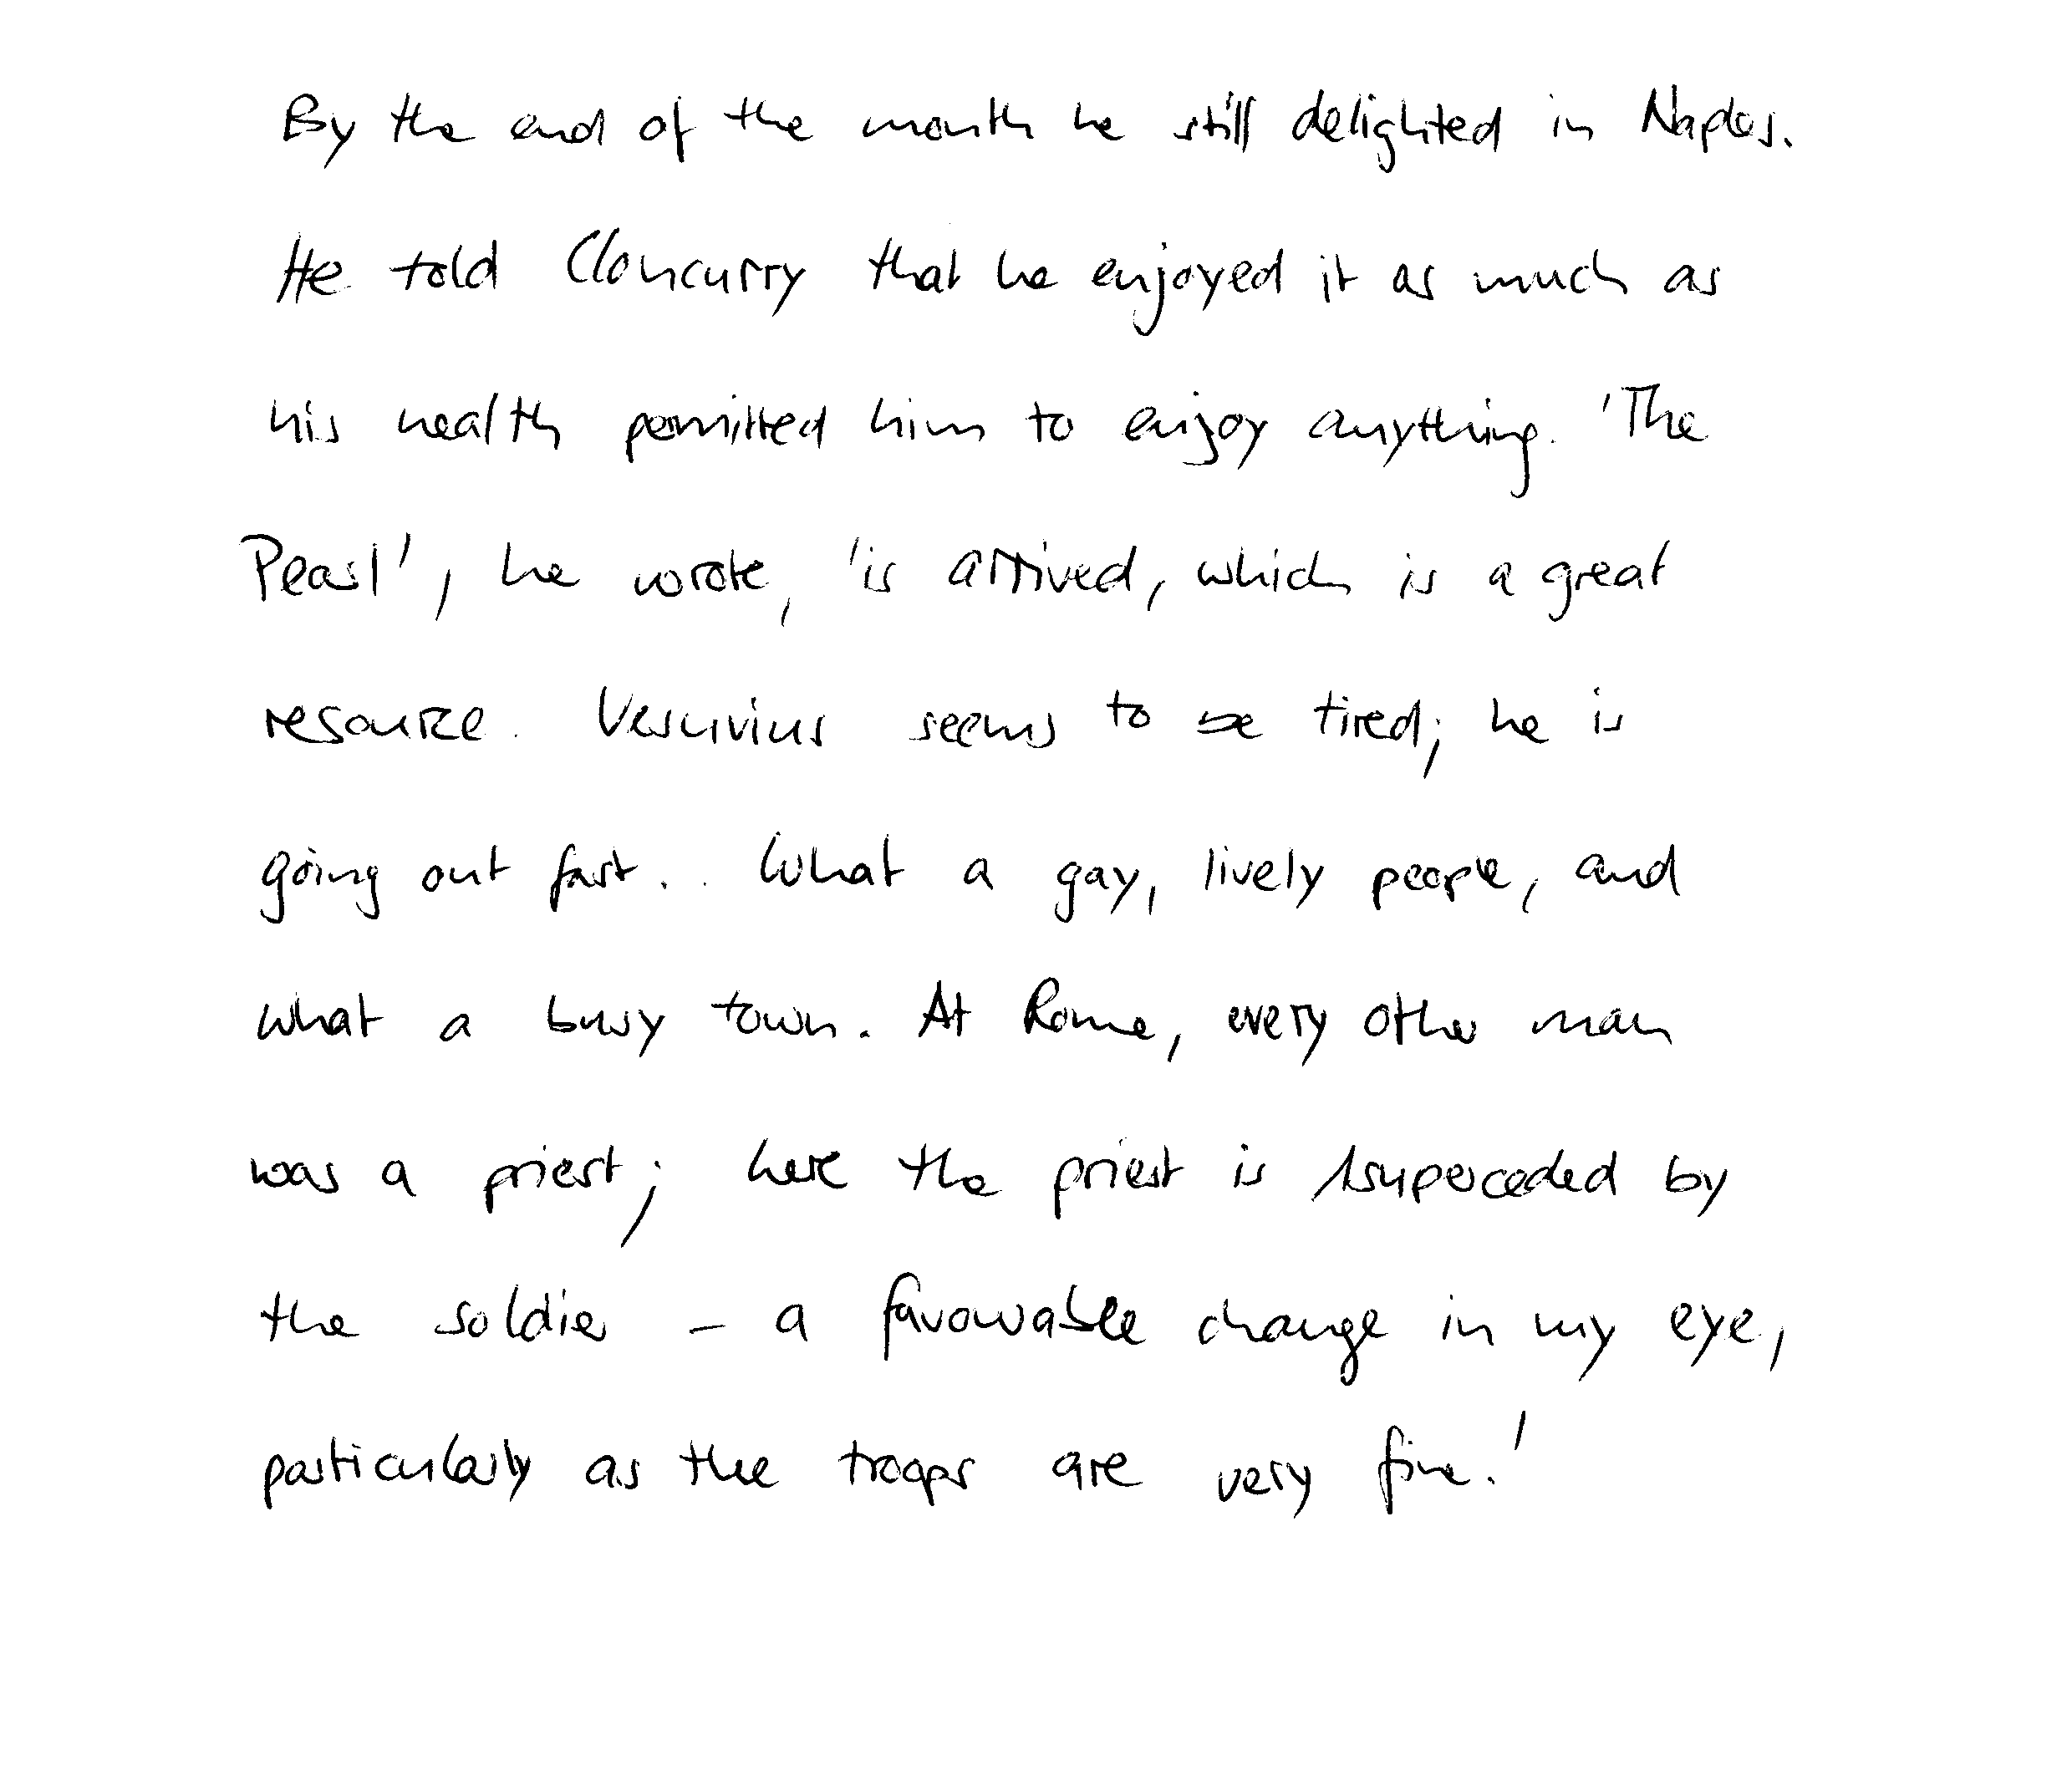 By the end of the month he still delighted in Naples.
He told Cloncurry that he enjoyed it as much as
his health permitted him to enjoy anything. 'The
Pearl', he wrote, 'is arrived, which is a great
resource. Vesuvius seems to be tired; he is
going out fast.. What a gay, lively people, and
what a busy town. At Rome, every other man
was a priest; here the priest is superceded by
the soldier - a favourable change in my eye,
particularly as the troops are very fine.'